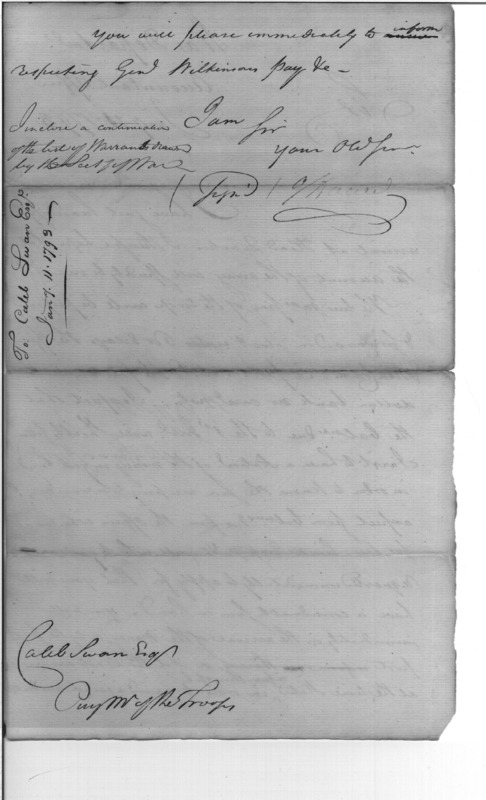 you will please immediately to answer inform
respecting Genl Wilkinsons Pay &c —
I am Sir
your Obd Ser
I inclose a continuation
of the list of Warrants drawn
by the Secy of War
(Sign'd)
To Caleb Swan Esqr.
Jany. 11. 1793 —
Caleb Swan Esqr
Pay Mr of the Troops